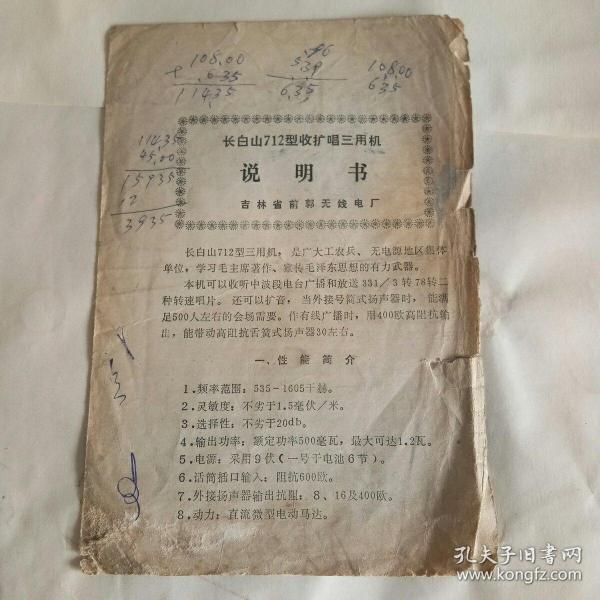 108.00
+ 6.35
11435
5.96
539
6.35
108.00
635
11435
45.00
15935
12
3935
长白山712型收扩唱三用机
说明书
吉林省前郭无线电厂
长白山712型三用机，是广大工农兵、无电源地区集体
单位，学习毛主席著作、宣传毛泽东思想的有力武器。
本机可以收听中波段电台广播和放送331/3转78转二
种转速唱片。还可以扩音，当外接号筒式扬声器时，能满
足500人左右的会场需要。作有线广播时，用400欧高阻抗输
出，能带动高阻抗舌簧式扬声器30左右。
一、性能简介
1.频率范围：535-1605千赫。
2.灵敏度：不劣于1.5毫伏/米。
3.选择性：不劣于20db。
4.输出功率：额定功率500毫瓦，最大可达1.2瓦。
5.电源：采用9伏（一号干电池6节）。
6.话筒插口输入：阻抗600欧。
7.外接扬声器输出抗阻：8、16及400欧。
8.动力：直流微型电动马达。
孔夫子旧书网
www.kongfz.com